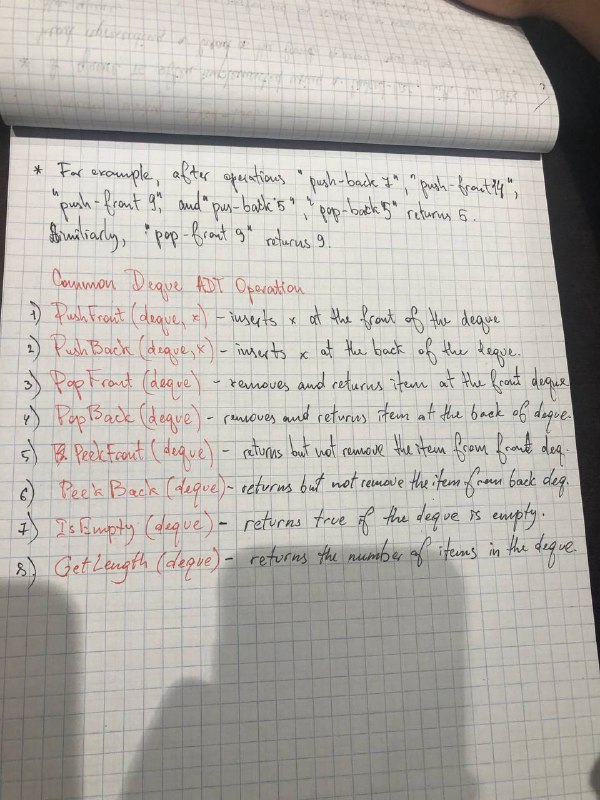 * For example, after operations "push-back 7", "push-front 14",
"push-front 9", and "pus-back 5", "pop-back 5" returns 5.
Similiarly, "pop-front 9" returns 9.
Common Deque ADT Operation
1) PushFront (deque, x) - inserts x at the front of the deque
2) PushBack (deque, x) - inserts x at the back of the deque.
3) PopFront (deque) - removes and returns item at the front deque
4) PopBack (deque) - removes and returns item at the back of deque.
5) PeekFront (deque) - returns but not remove the item from front deq.
6) PeekBack (deque) - returns but not remove the item from back deq.
7) IsEmpty (deque) - returns true if the deque is empty.
8) GetLength (deque) - returns the number of items in the deque.